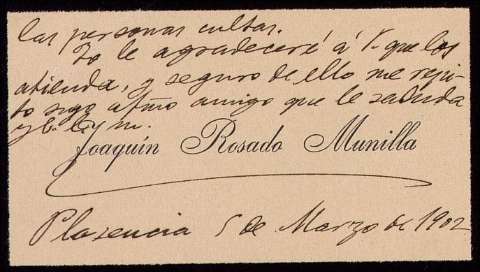 las personas cultas.
Yo le agradeceré á V. que los
atienda, y seguro de ello me repi-
to suyo afmo amigo que le saluda
y b. l. m.
Joaquín Rosado Munilla
Plasencia 5 de Marzo de 1902